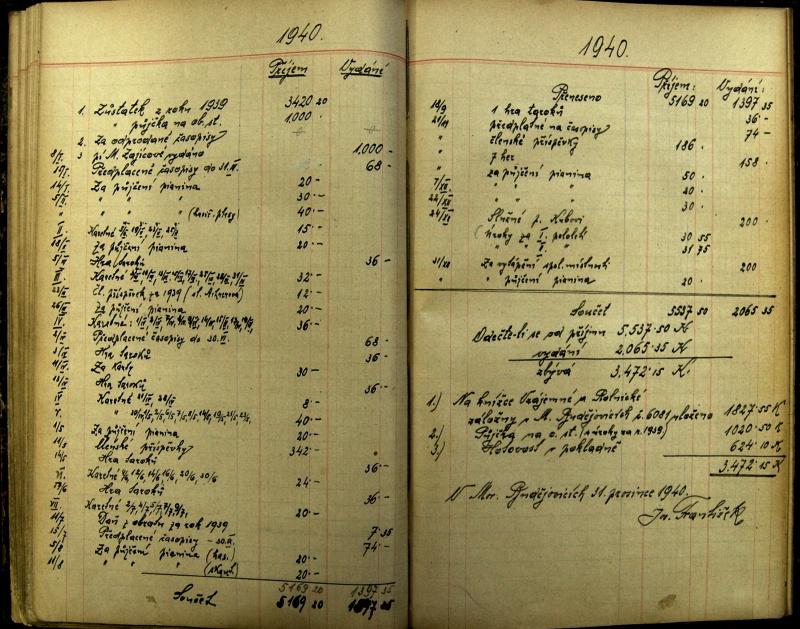 1940.
Příjem Vydání
1. Zůstatek z roku 1939 3420 20
půjčka na ob. st. 1.000 -
2. Za odprodané časopisy
8/I. 3 pí M. Zajícové vydáno 1.000 -
19/I. Předplacené časopisy do 31.III. 68 -
14/I. Za půjčení pianina 20 -
5/II. " " " 30 -
" " " " 40 -
II. Karetné 15 -
za půjčení pianina 20 -
5/II Hra taroků 36 -
III. Karetné 32 -
Čl. příspěvek za 1939 12 -
26/III za půjčení pianina 20 -
IV. Karetné: 36 -
2/IV Předplacené časopisy do 30.VI. 68 -
Hra taroků 36 -
Za karty 30 -
Hra taroků 36 -
IV Karetné 8 -
V. " 40 -
1/5 Za půjčení pianina 20 -
11/5 Členské příspěvky 342 -
14/5 Hra taroků 36 -
VI. Karetné 4/6, 12/6, 14/6, 16/6, 20/6, 30/6 24 -
19/6 Hra taroků 36 -
VII. Karetné 20 -
11/7 Daň z obratu za rok 1939 7 35
15/7 Předplacené časopisy - 30.IX. 74 -
5/8 Za půjčení pianina 20 -
11/8 " " " 20 -
5169 20 1397 35
Součet 5169 20 1397 35
1940.
Příjem: Vydání:
Přeneseno 5169 20 1397 35
18/9 1 hra taroků 36 -
21/11 předplatné na časopisy 74 -
" členské příspěvky 186 -
" 7 her 158 -
" za půjčení pianina 50 -
7/XII. " " " 20 -
22/XII " " " 30 -
24/XII Služné p. Kubovi 200 -
Úroky za I. pololetí 30 55
" " II. " 31 75
31/XII Za vytápění spol. místností 200
" " půjčení pianina 20 -
Součet 5537 50 2065 35
Odečte-li se od příjmu 5.537·50 K
vydání 2.065·35 K
zbývá 3.472·15 K.
1.) Na knížce Vzájemné a Rolnické
záložny v M. Budějovicích č. 6081 uloženo 1827·55 K
2.) Půjčka na o. st. (s úroky za r. 1939) 1020·50 K
3.) Hotovost v pokladně 624·10 K
3.472·15 K
V Mor. Budějovicích 31. prosince 1940.
Jn. František